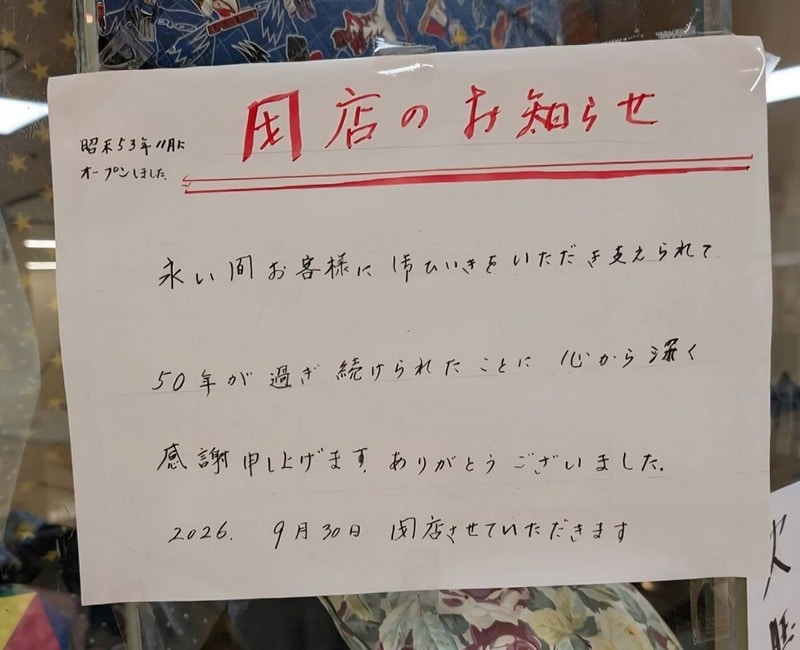 閉店のお知らせ
昭和53年11月に
オープンしました。
永い間お客様に御ひいきをいただき支えられて
50年が過ぎ続けられたことに心から深く
感謝申し上げます。ありがとうございました。
2026. 9月30日 閉店させていただきます